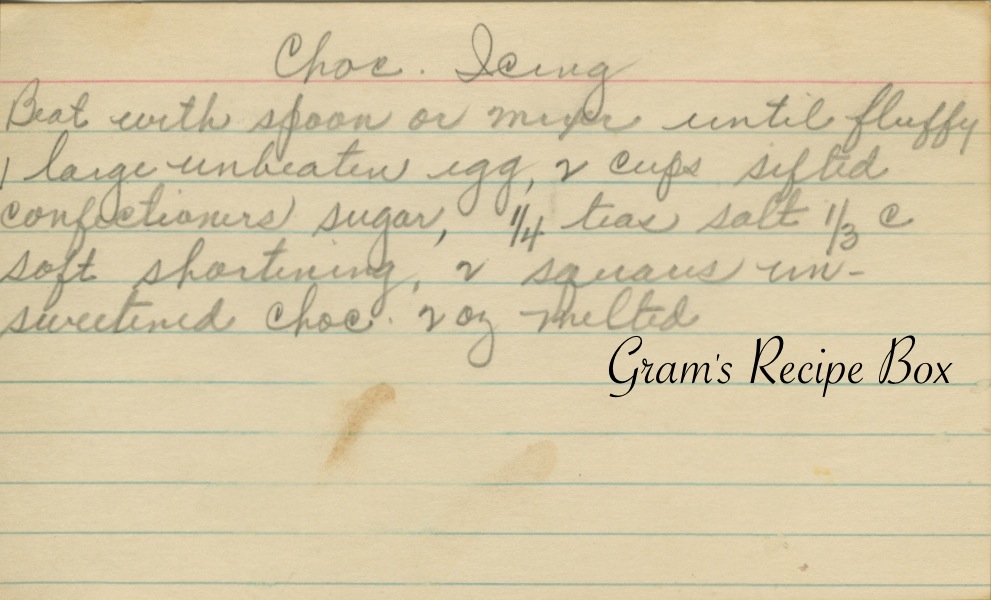 Choc. Icing
Beat with spoon or mixer until fluffy
1 large unbeaten egg, 2 cups sifted
confectioners sugar, 1/4 teas salt 1/3 c
soft shortening, 2 squares un-
sweetened choc. 2 oz melted
Gram's Recipe Box